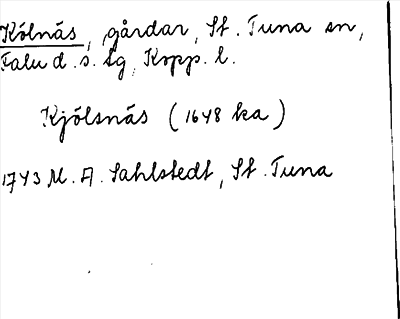 Kölnäs, gårdar, St. Tuna sn,
Falu d. s. tg, Kopp. l.
Kjölsnäs (1648 ka)
1743 M. A. Sahlstedt, St. Tuna